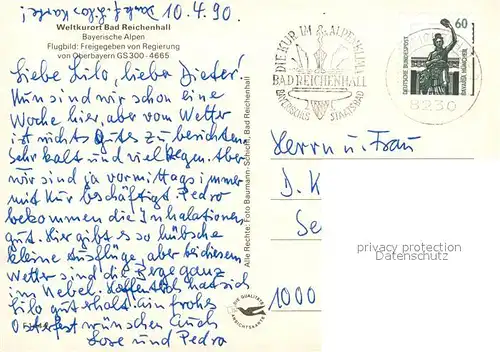 Dank f. Lilos Karte! 10.4.90.
Weltkurort Bad Reichenhall
Bayerische Alpen
Flugbild: Freigegeben von Regierung
von Oberbayern GS 300-4665
Liebe Lilo, lieber Dieter!
Nun sind wir schon eine
Woche hier, aber vom Wetter
ist nichts Gutes zu berichten
Sehr kalt und viel Regen. Aber
wir sind ja vormittags immer
mit Kur beschäftigt. Pedro
bekommen die Inhalationen
gut. Hier gibt es so hübsche
kleine Ausflüge, aber bei diesem
Wetter sind die Berge ganz
im Nebel. Hoffentlich hat sich
Lilo gut erholt. Ein frohes
Osterfest wünschen Euch
Lore und Pedro
Alle Rechte: Foto Baumann-Schicht, Bad Reichenhall
DIE KUR IM ALPENKLIMA
BAD REICHENHALL
BAYERISCHES STAATSBAD
8230
60
DEUTSCHE BUNDESPOST
BAVARIA MÜNCHEN
Herrn u. Frau
D. K
Se
1000
DIE QUALITÄTS
ANSICHTSKARTE
privacy protection
Datenschutz